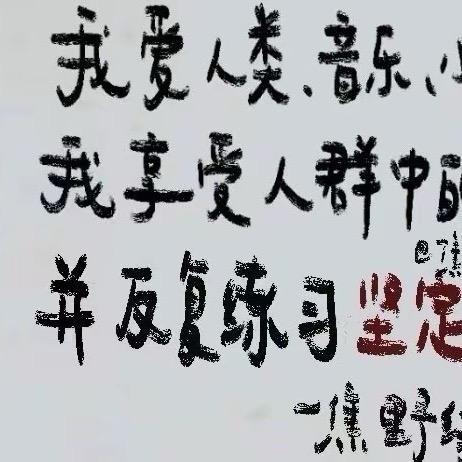 我爱人类、音乐、
我享受人群中
并反复练习坚定
一焦野